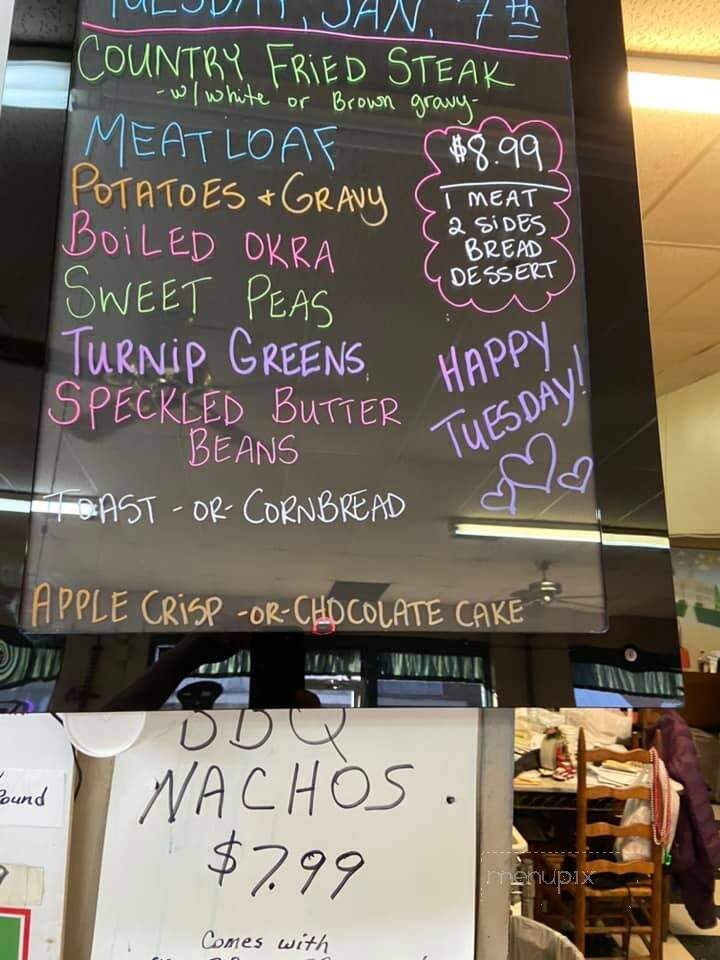 TUESDAY, JAN. 7th
COUNTRY FRIED STEAK
-w/white or Brown gravy-
MEATLOAF
POTATOES + GRAVY
BOILED OKRA
SWEET PEAS
TURNIP GREENS
SPECKLED BUTTER
BEANS
TOAST -OR- CORNBREAD
APPLE CRISP -OR- CHOCOLATE CAKE
$8.99
1 MEAT
2 SIDES
BREAD
DESSERT
HAPPY
TUESDAY!
BBQ
NACHOS.
$7.99
Comes with
Pound
menupix